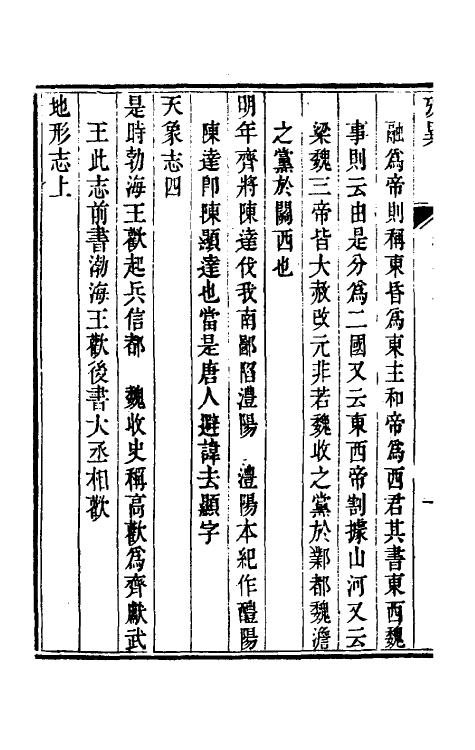 融爲帝則稱東昏爲東主和帝爲西君其書東西魏
事則云由是分爲二國又云東西帝割據山河又云
梁魏三帝皆大赦改元非若魏收之黨於鄴都魏澹
之黨於關西也
明年齊將陳達伐我南鄙陷澧陽　澧陽本紀作醴陽
陳達卽陳顯達也當是唐人避諱去顯字
天象志四
是時勃海王歡起兵信都　魏收史稱高歡爲齊獻武
王此志前書渤海王歡後書大丞相歡
地形志上